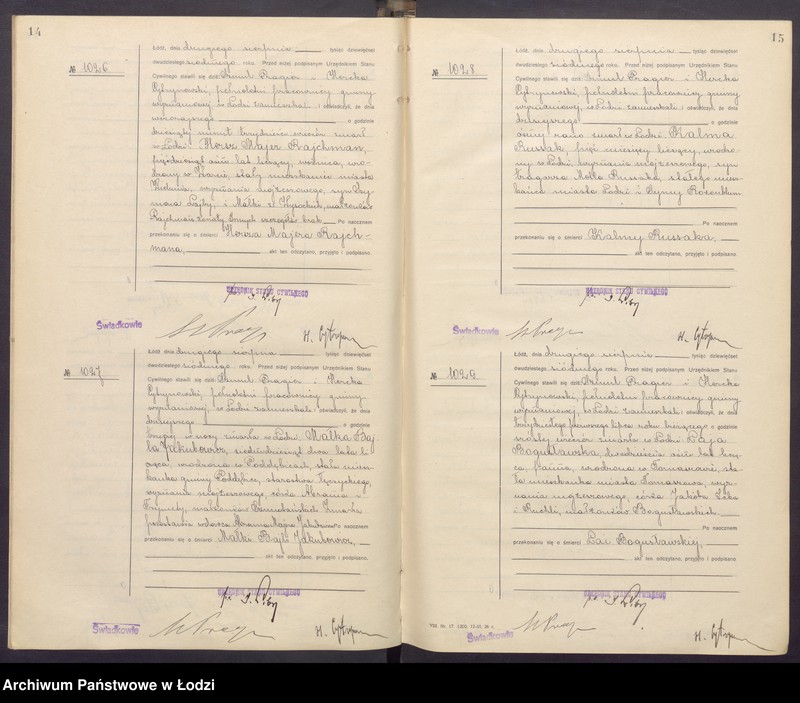 14
№ 1026
Łódź, dnia drugiego sierpnia tysiąc dziewięćset
dwudziestego siódmego roku. Przed niżej podpisanym Urzędnikiem Stanu
Cywilnego stawili się dziś: Szmul Prager i Hercke
Cytrynowski, pełnoletni pracownicy gminy
wyznaniowej, w Łodzi zamieszkali i oświadczyli, że dnia
wczorajszego o godzinie
dziesiątej minut trzydzieści wieczór zmarł
w Łodzi Hersz Majer Rajchman,
lat liczący,
stały mieszkaniec miasta
wyznania mojżeszowego, syn
i Małki z małżonków
Rajchman brak Po naocznem
przekonaniu się o śmierci Hersza Majera Rajch-
mana, akt ten odczytano, przyjęto i podpisano.
URZĘDNIK STANU CYWILNEGO
Świadkowie
№ 1027
Łódź, dnia drugiego sierpnia tysiąc dziewięćset
dwudziestego siódmego roku. Przed niżej podpisanym Urzędnikiem Stanu
Cywilnego stawili się dziś: Szmul Prager i Hercke
Cytrynowski, pełnoletni pracownicy gminy
wyznaniowej, w Łodzi zamieszkali i oświadczyli, że dnia
dzisiejszego o godzinie
w nocy zmarła w Łodzi Małka Baj-
la Jakubowicz, siedemdziesiąt dwa lata li-
cząca, urodzona w Poddębicach, stała miesz-
kanka gminy Poddębice, starostwa Łęczyckiego,
wyznania mojżeszowego, córka Abrama i
małżonków Zmarła
pozostawiła wdowca Jakubowicza Po naocznem
przekonaniu się o śmierci Małki Bajli Jakubowicz,
akt ten odczytano, przyjęto i podpisano.
URZĘDNIK STANU CYWILNEGO
Świadkowie
15
№ 1028
Łódź, dnia drugiego sierpnia tysiąc dziewięćset
dwudziestego siódmego roku. Przed niżej podpisanym Urzędnikiem Stanu
Cywilnego stawili się dziś: Szmul Prager i Hercke
Cytrynowski, pełnoletni pracownicy gminy
wyznaniowej, w Łodzi zamieszkali i oświadczyli, że dnia
dzisiejszego o godzinie
ósmej rano zmarł w Łodzi Kalma
Russak, pięć miesięcy liczący, urodzo-
ny w Łodzi, wyznania mojżeszowego, syn
Russaka, stałego miesz-
kańca miasta Łodzi i Rosenblum
Po naocznem
przekonaniu się o śmierci Kalmy Russaka,
akt ten odczytano, przyjęto i podpisano.
URZĘDNIK STANU CYWILNEGO
Świadkowie
№ 1029
Łódź, dnia drugiego sierpnia tysiąc dziewięćset
dwudziestego siódmego roku. Przed niżej podpisanym Urzędnikiem Stanu
Cywilnego stawili się dziś: Szmul Prager i Hercke
Cytrynowski, pełnoletni pracownicy gminy
wyznaniowej, w Łodzi zamieszkali i oświadczyli, że dnia
trzydziestego pierwszego lipca roku bieżącego o godzinie
szóstej wieczór zmarła w Łodzi Łaja
Bogusławska, dwadzieścia lat liczą-
ca, panna, urodzona w Tomaszowie, sta-
ła mieszkanka miasta Tomaszowa, wyz-
nania mojżeszowego, córka Jakóba
i Ruchli, małżonków Bogusławskich.
Po naocznem
przekonaniu się o śmierci Łai Bogusławskiej,
akt ten odczytano, przyjęto i podpisano.
URZĘDNIK STANU CYWILNEGO
Świadkowie
Archiwum Państwowe w Łodzi